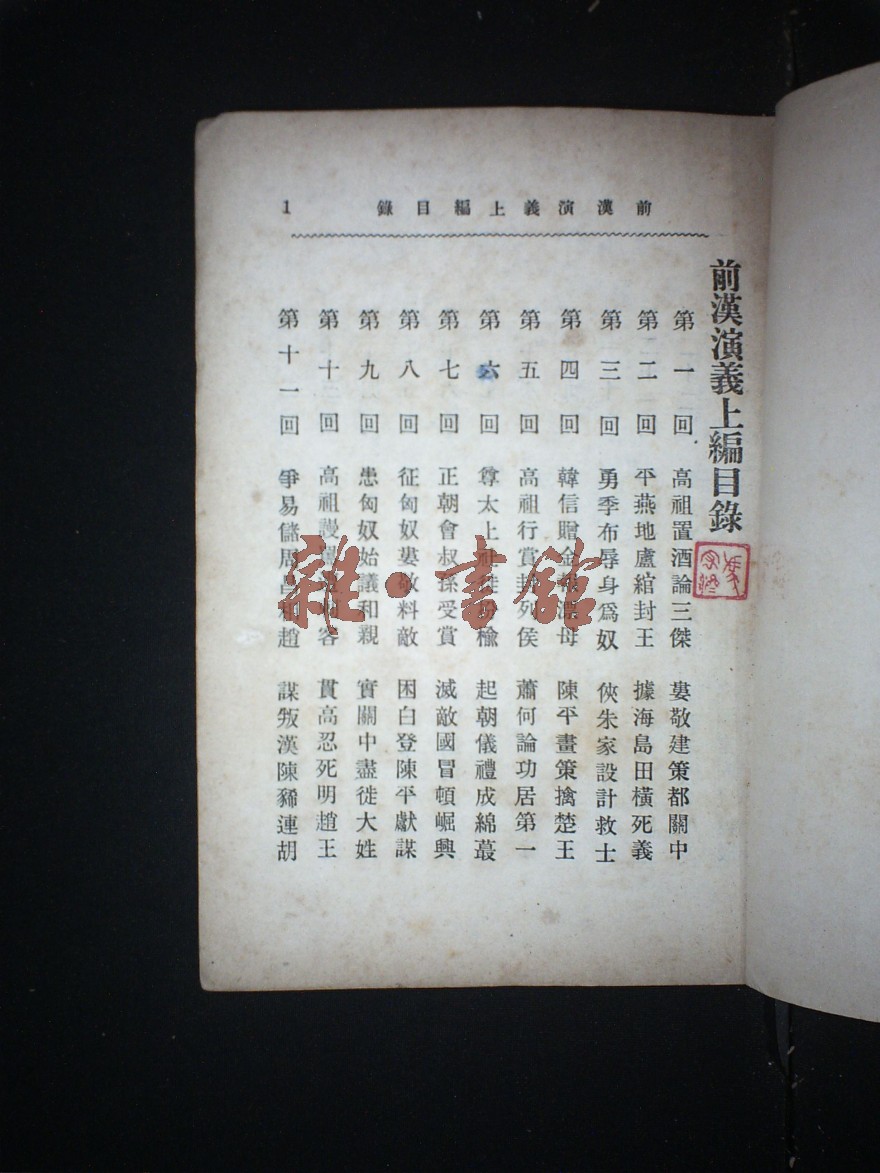 前漢演義上編目錄 1
前漢演義上編目錄
第一回 高祖置酒論三傑 婁敬建策都關中
第二回 平燕地盧綰封王 據海島田橫死義
第三回 勇季布辱身爲奴 俠朱家設計救士
第四回 韓信贈金報漂母 陳平畫策擒楚王
第五回 高祖行賞封列侯 蕭何論功居第一
第六回 尊太上社徙枌榆 起朝儀禮成綿蕞
第七回 正朝會叔孫受賞 滅敵國冒頓崛興
第八回 征匈奴婁敬料敵 困白登陳平獻謀
第九回 患匈奴始議和親 實關中盡徙大姓
第十回 高祖謾罵 客 貫高忍死明趙王
第十一回 爭易儲周昌相趙 謀叛漢陳豨連胡
雜·書館